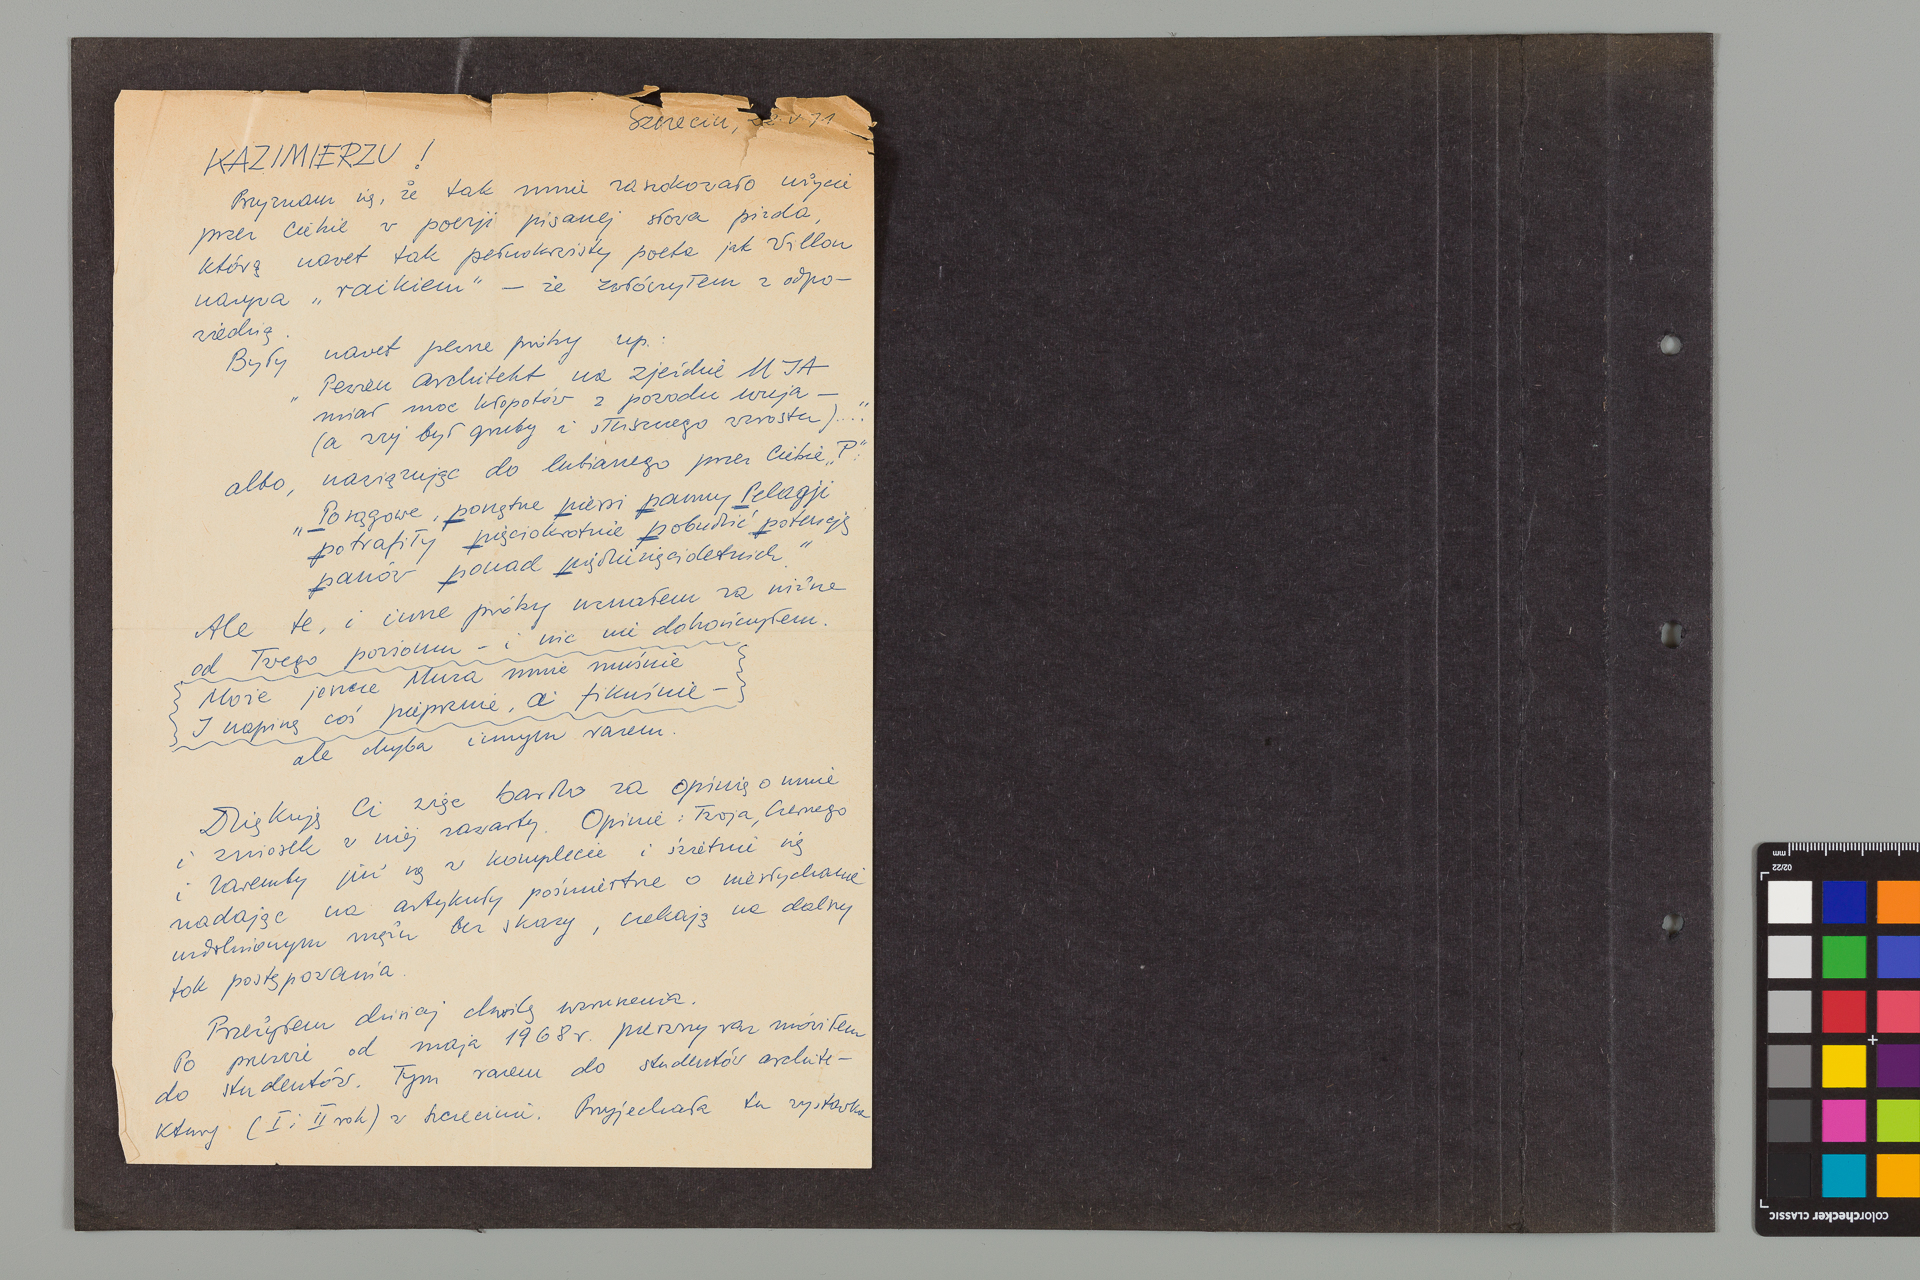 Szczecin, 22 V 71
KAZIMIERZU!
Przyznam się, że tak mnie zaszokowało użycie
przez Ciebie w poezji pisanej słowa pizda,
którą nawet tak pełnokrwisty poeta jak Villon
nazywa „raikiem” — że zwlóczyłem z odpo-
wiedzią.
Były nawet pewne próby np.:
„Pewien architekt na zjeździe UIA
miał moc kłopotów z powodu wuja —
(a wuj był gruby i słusznego wzrostu)...."
albo, nawiązując do lubianego przez Ciebie „P":
„Posągowe, ponętne piersi panny Pelagji
potrafiły pięciokrotnie pobudzić potencję
panów ponad pięćdziesięcioletnich."
Ale te, i inne próby uznałem za niższe
od Twego poziomu - i nic nie dokończyłem.
Może jeszcze Muza mnie muśnie
I napiszę coś pieprznie, a fikuśnie —
ale chyba innym razem.
Dziękuję Ci więc bardzo za opinię o mnie
i wniosek w niej zawarty. Opinie: Twoja, Czernego
i Zaremby już są w komplecie i świetnie się
nadając na artykuły pośmiertne o niesłychanie
uzdolnionym mężu bez skazy, czekają na dalszy
tok postępowania.
Przeżyłem dzisiaj chwilę wzruszenia.
Po przerwie od maja 1968 r. pierwszy raz mówiłem
do studentów. Tym razem do studentów archite-
ktury (I i II rok) w Szczecinie. Przyjechała tu wystawka